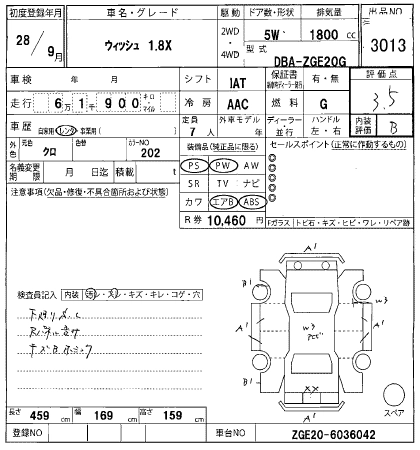 初度登録年月 車名・グレード 駆動 ドア数・形状 排気量 出品NO
28/9月 ウィッシュ 1.8X 2WD・4WD 5W 1800cc 3013
型式 DBA-ZGE20G
車検 年 月 シフト IAT 保証書 有・無 評価点 3.5
走行 6万1千900 キロ・マイル 冷房 AAC 燃料 G
車歴 自家用 レンタ 事業用( ) 定員 7人 外車モデル 年 ディーラー・並行 ハンドル 左・右 内装評価 B
外色 元色 クロ 色替 カラーNO 202
装備品(純正品に限る) セールスポイント(正常に作動するもの)
名義変更期限 月 日迄 積載 t
PS PW AW
SR TV ナビ
カワ エアB ABS
注意事項(欠品・修復・不具合箇所および状態)
R券 10,460円
Fガラス トビ石・キズ・ヒビ・ワレ・リペア跡
検査員記入 内装 汚レ・スレ・キズ・キレ・コゲ・穴
A1
B1
A1
A1
W3
W3
B1
XX
A1
スペア
長さ 459cm 幅 169cm 高さ 159cm
登録NO 車台NO ZGE20-6036042